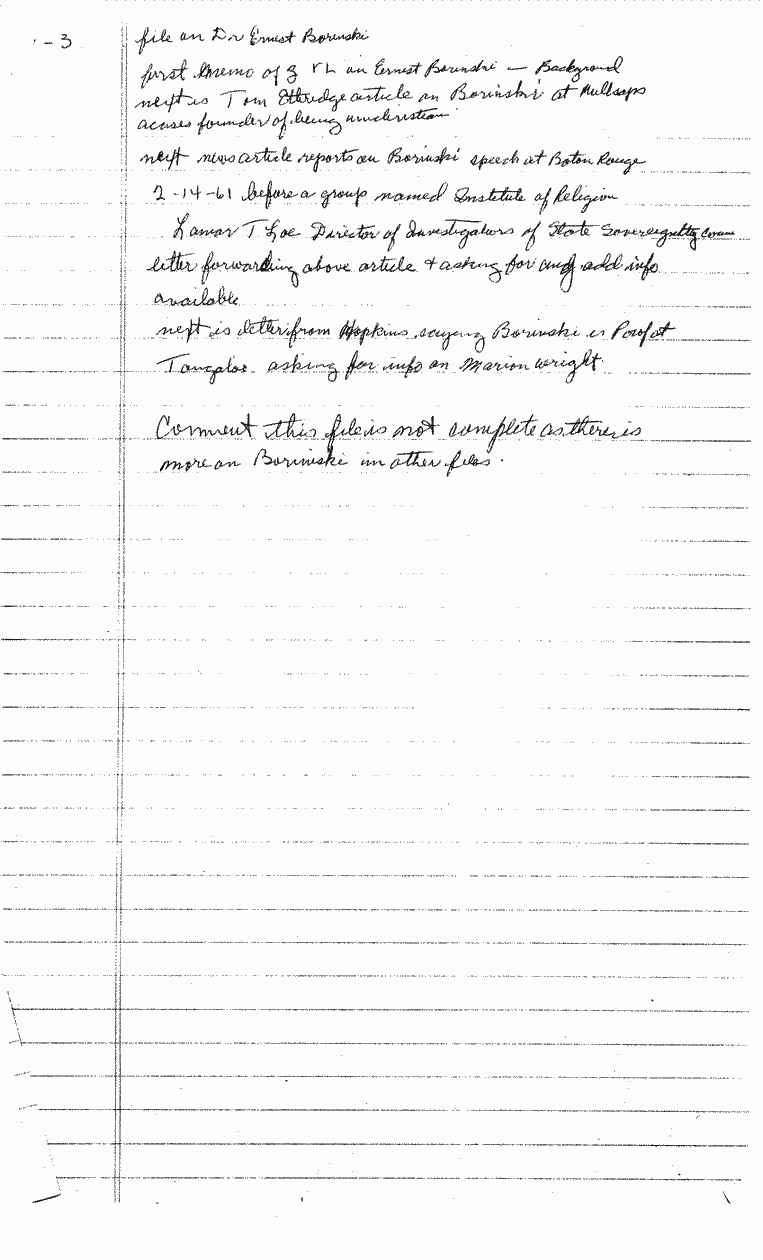 - 3
file on Dr Ernest Borinski
first memo of on Ernest Borinski — Background
next is Tom Ethridge article on Borinski at Millsaps
acuses founder of being unchristian
next news article reports on Borinski speech at Baton Rouge
2-14-61 before a group named Institute of Religion
Lamar T Loe Director of Investigators of State Sovereignty Comm
letter forwarding above article + asking for any add info
available
next is letter from Hopkins saying Borinski is Prof at
Tougaloo asking for info on Marion wright
Comment this file is not complete as there is
more on Borinski in other files.